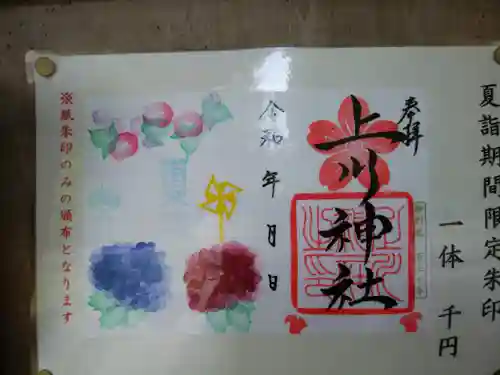 夏詣期間限定朱印
一体 千円
奉拝
上川神社
令和 年 月 日
夏
卯
※紙朱印のみの頒布となります